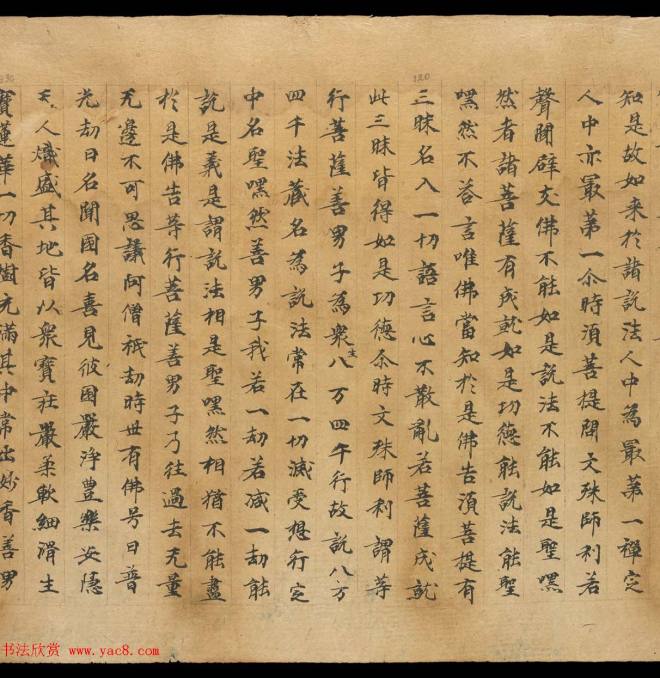 知是故如来扵諸説法人中為冣苐一禪㝎
人中亦冣苐一尒時湏菩提問文殊師利若
聲聞辟支佛不能如是説法不能如是聖嘿
然者諸菩薩有成就如是功德能説法能聖
嘿然不荅言唯佛當知扵是佛告湏菩提有
三昧名入一切語言心不散亂若菩薩成就
此三昧皆得如是功德尒時文殊師利謂等
行菩薩善男子為衆生八万四千行故説八万
四千法藏名為説法常在一切滅受想行㝎
中名聖嘿然善男子我若一劫若减一劫能
説是義是謂説法相是聖嘿然相猶不能盡
扵是佛告等行菩薩善男子乃往過去无量
无邊不可思議阿僧祇劫時世有佛号曰普
光劫曰名聞國名喜見彼國嚴浄豊樂安隱
天人熾盛其地皆以衆寳莊嚴柔軟細滑生
寳蓮華一切香樹充滿其中常出妙香善男
120
书法欣赏 www.yac8.com